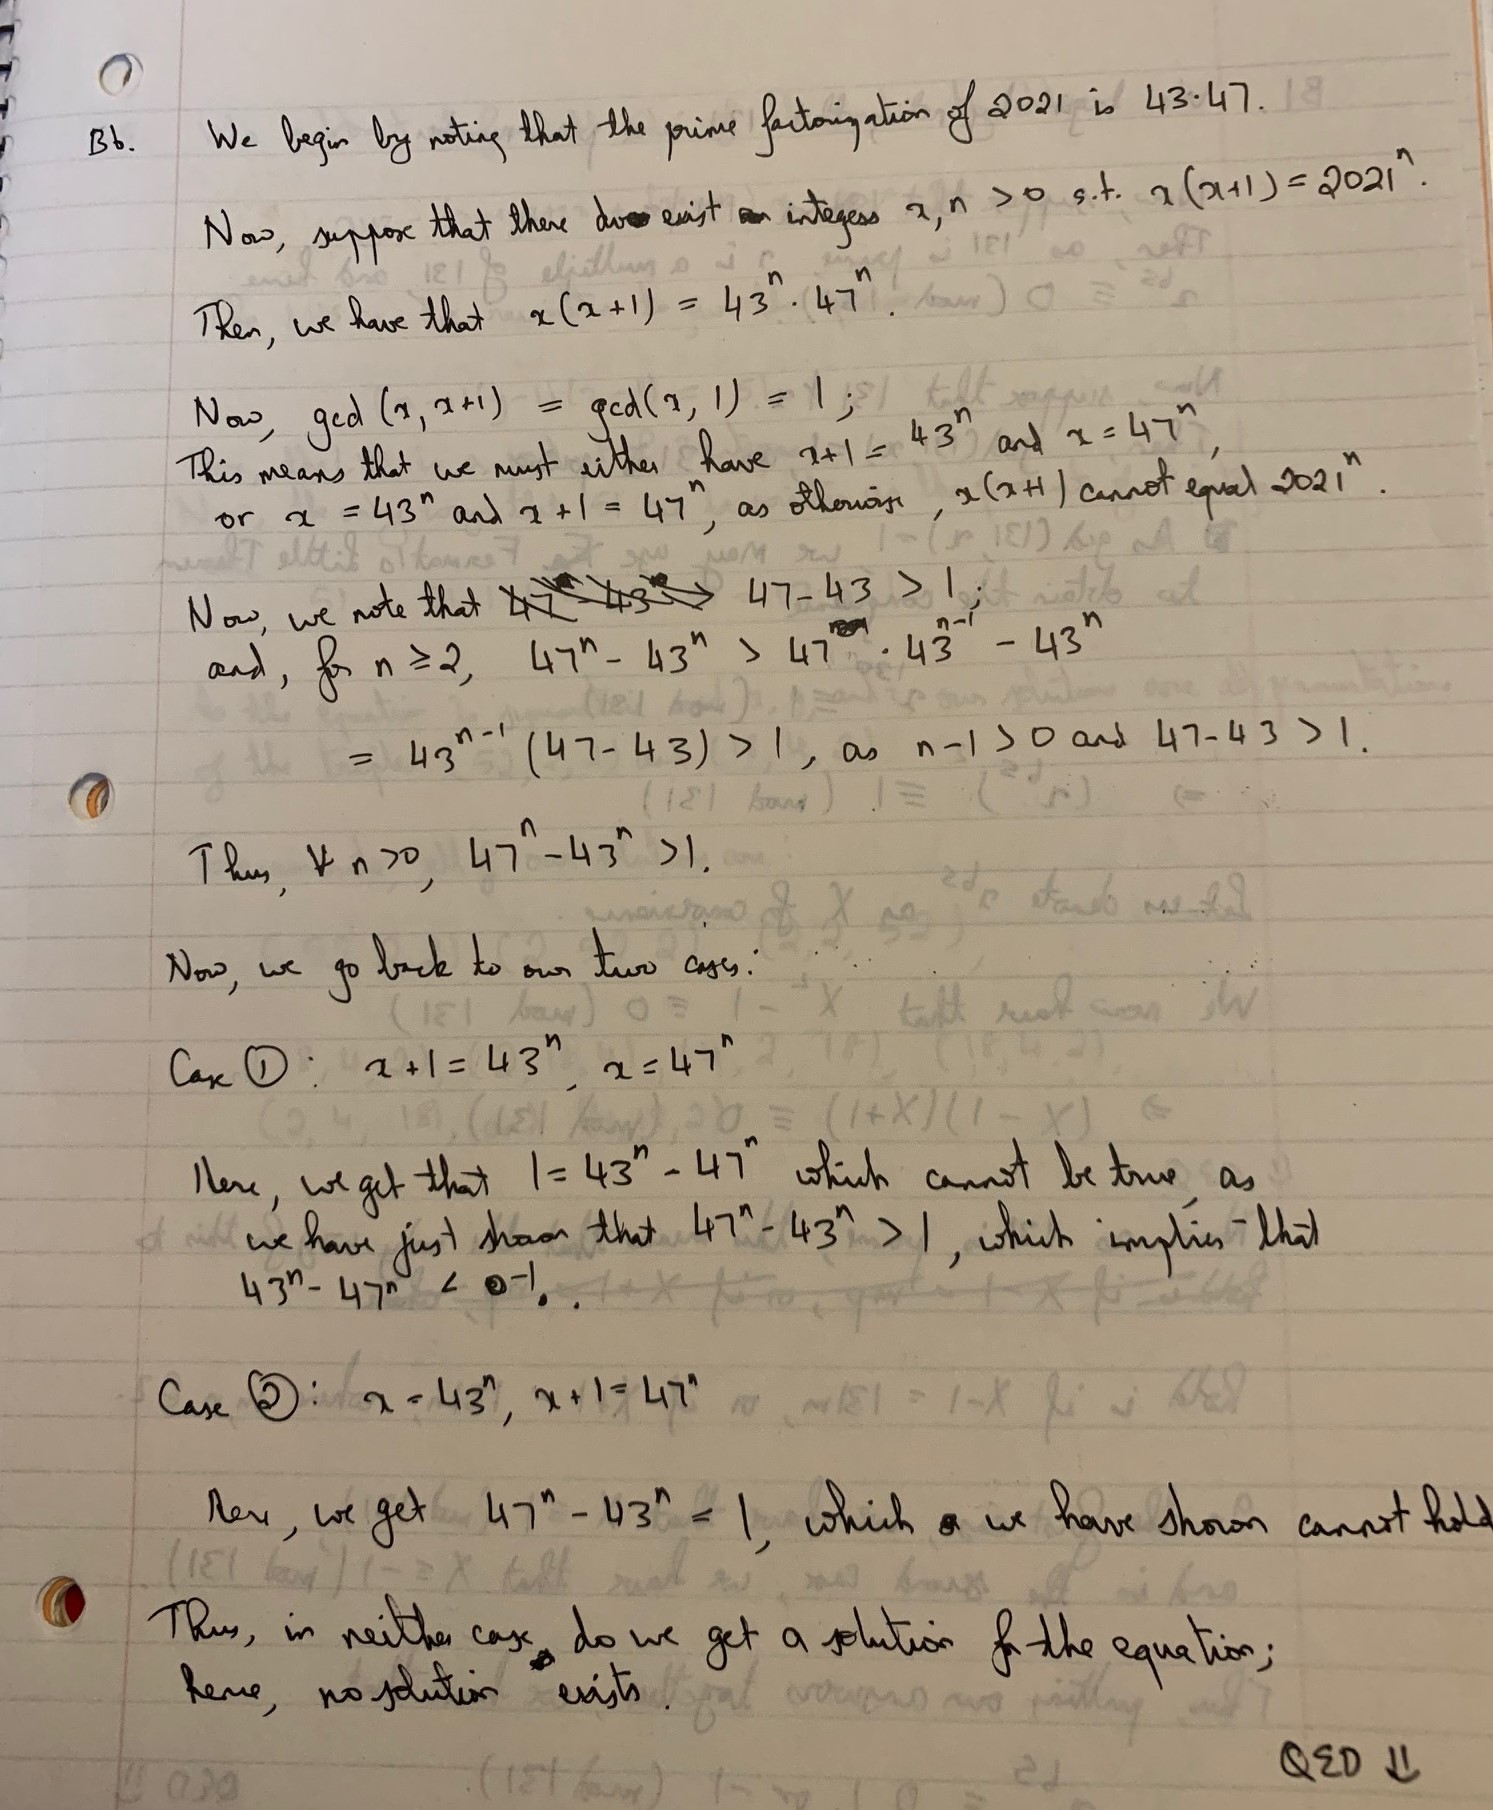 B6. We begin by noting that the prime factorization of 2021 is 43·47.
Now, suppose that there do exist integers x, n > 0 s.t. x(x+1) = 2021ⁿ.
Then, we have that x(x+1) = 43ⁿ · 47ⁿ.
Now, gcd(x, x+1) = gcd(x, 1) = 1;
This means that we must either have x+1 = 43ⁿ and x = 47ⁿ,
or x = 43ⁿ and x+1 = 47ⁿ, as otherwise, x(x+1) cannot equal 2021ⁿ.
Now, we note that 47-43 > 1;
and, for n ≥ 2, 47ⁿ - 43ⁿ > 47 · 43ⁿ⁻¹ - 43ⁿ
= 43ⁿ⁻¹ (47-43) > 1, as n-1 > 0 and 47-43 > 1.
Thus, ∀ n > 0, 47ⁿ - 43ⁿ > 1.
Now, we go back to our two cases:
Case ①: x+1 = 43ⁿ, x = 47ⁿ
Here, we get that 1 = 43ⁿ - 47ⁿ which cannot be true, as
we have just shown that 47ⁿ - 43ⁿ > 1, which implies that
43ⁿ - 47ⁿ < -1.
Case ②: x = 43ⁿ, x+1 = 47ⁿ
Here, we get 47ⁿ - 43ⁿ = 1, which we have shown cannot hold
Thus, in neither case do we get a solution for the equation;
hence, no solution exists.
QED ⇓